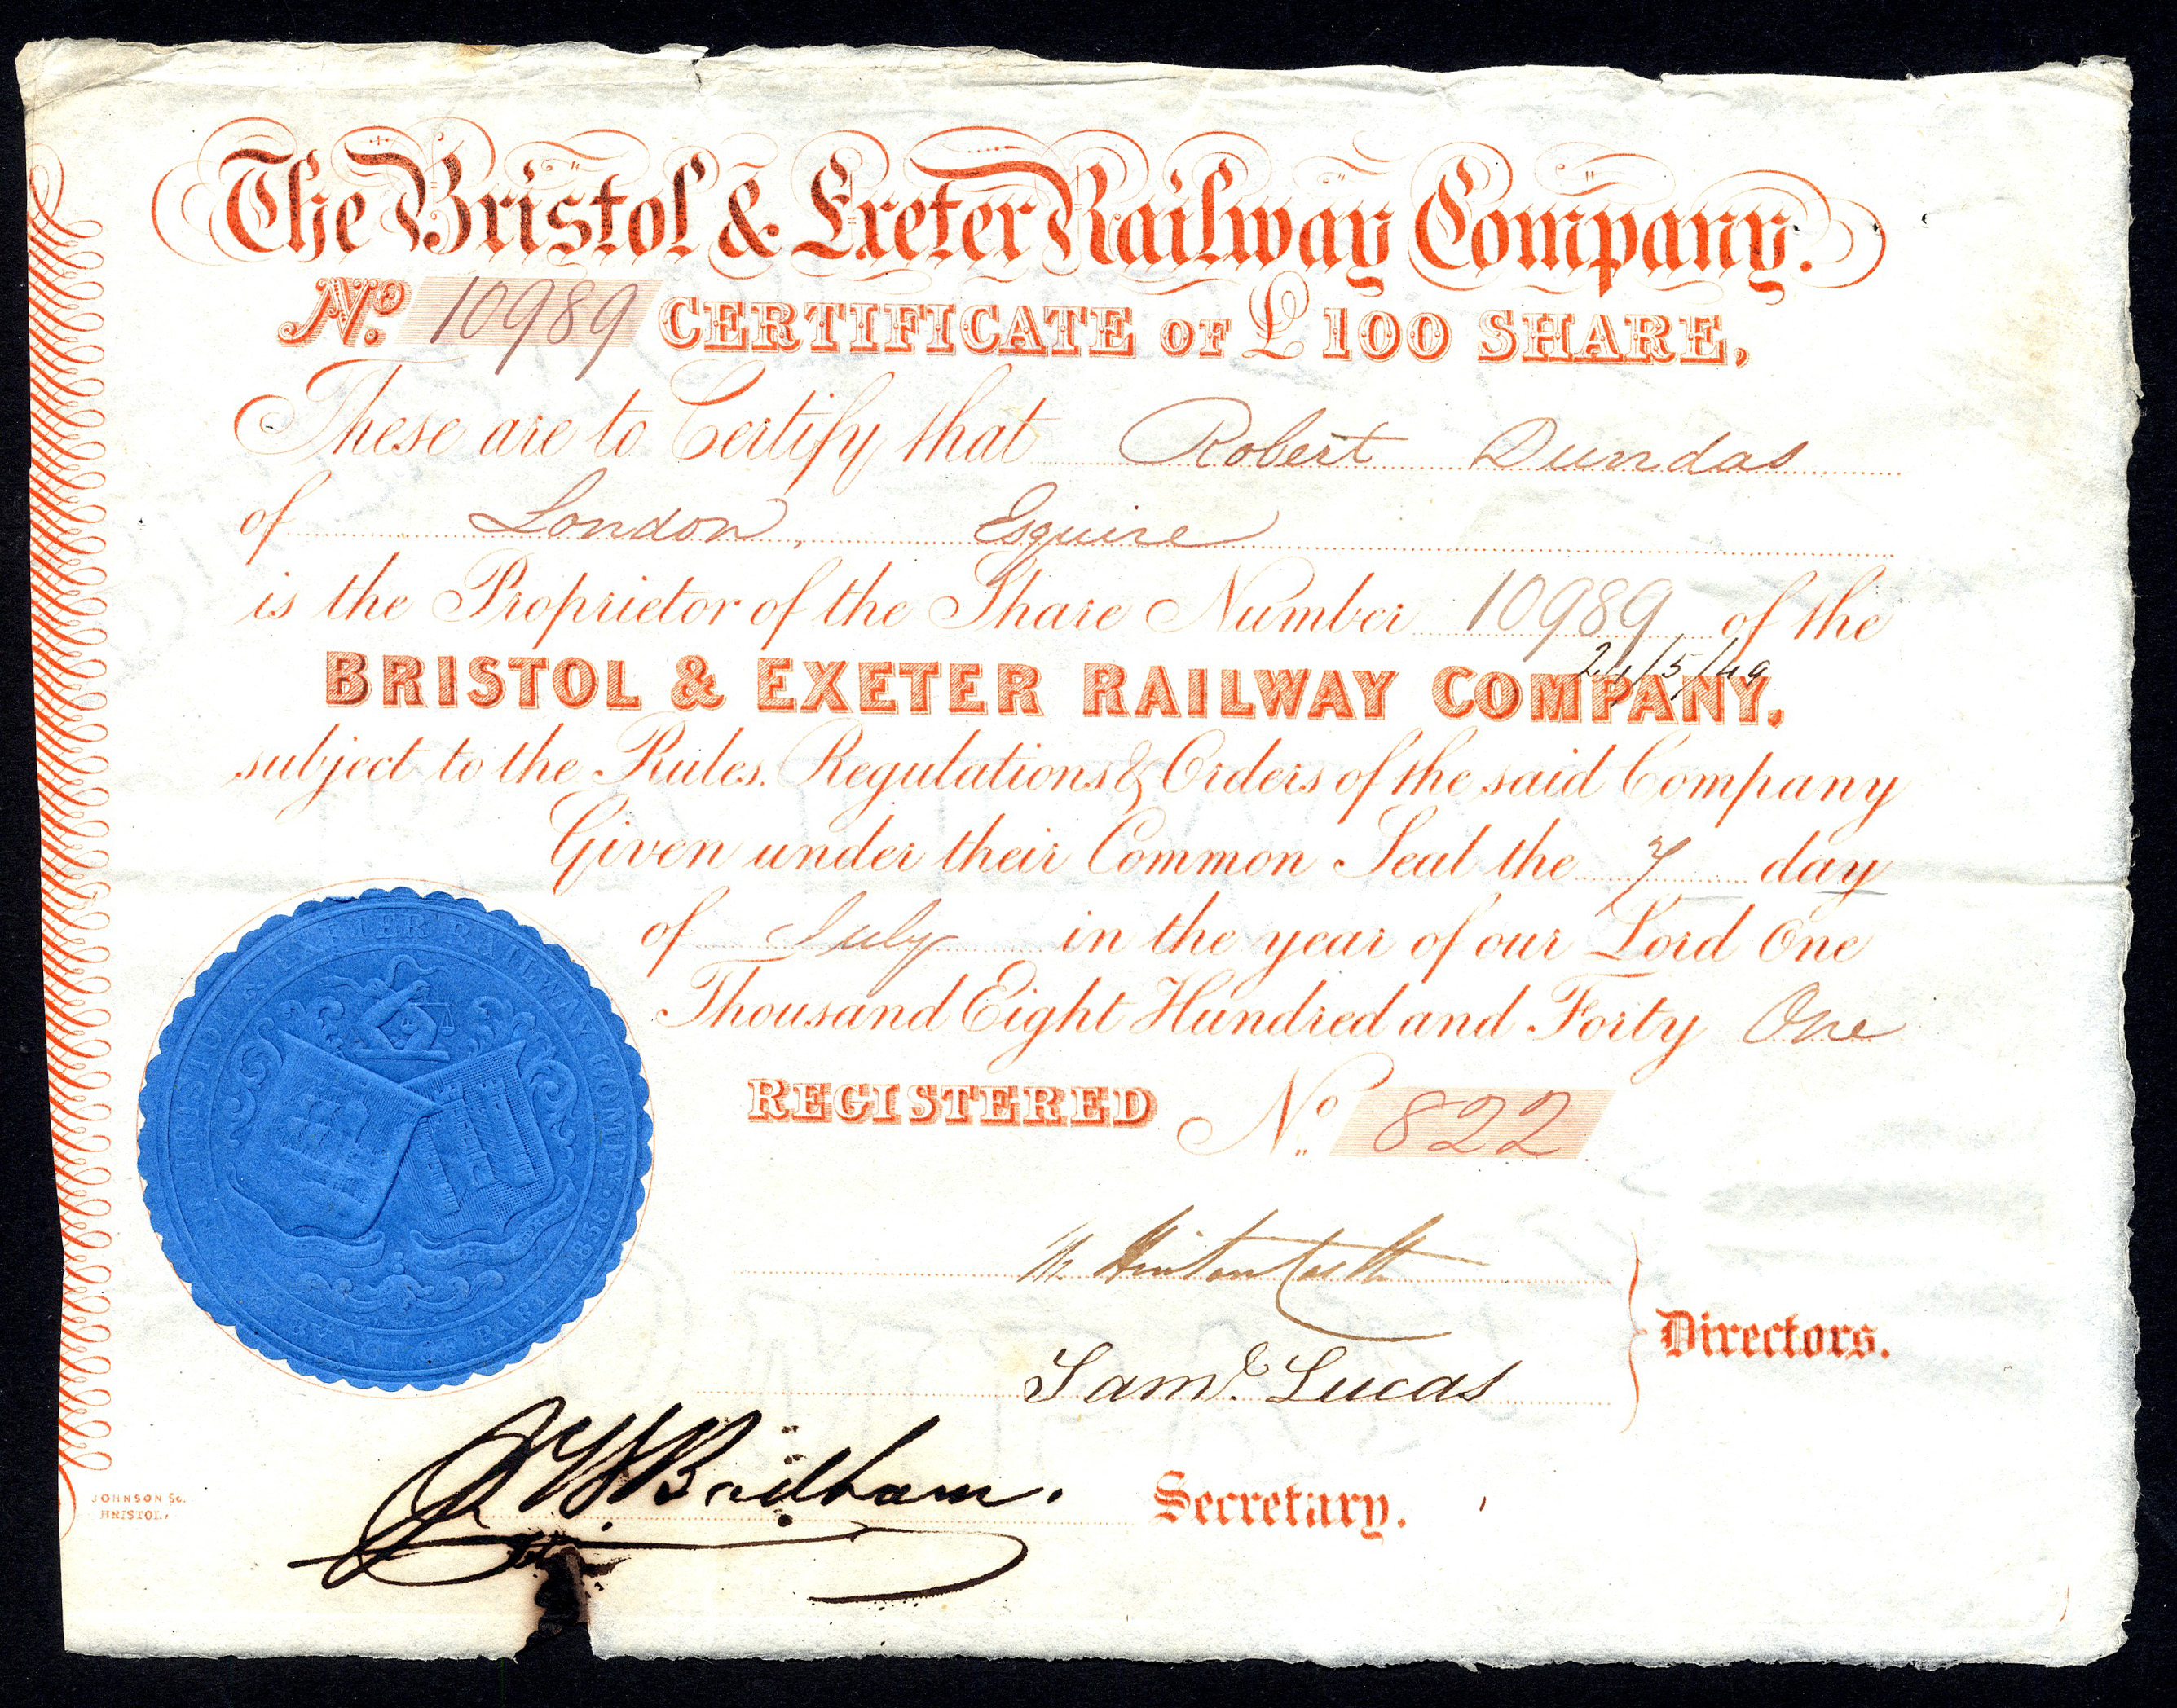 The Bristol & Exeter Railway Company.
No. 10989 CERTIFICATE OF £100 SHARE,
These are to Certify that Robert Dundas
of London, Esquire
is the Proprietor of the Share Number 10989 of the
24/5/49
BRISTOL & EXETER RAILWAY COMPANY,
subject to the Rules, Regulations & Orders of the said Company
Given under their Common Seal the 7 day
of July in the year of our Lord One
Thousand Eight Hundred and Forty One
REGISTERED No. 822
BRISTOL & EXETER RAILWAY COMPY.
BY ACT OF PARLT 1836
Directors.
Saml. Lucas
J W Badham. Secretary.
JOHNSON Sc.
BRISTOL,